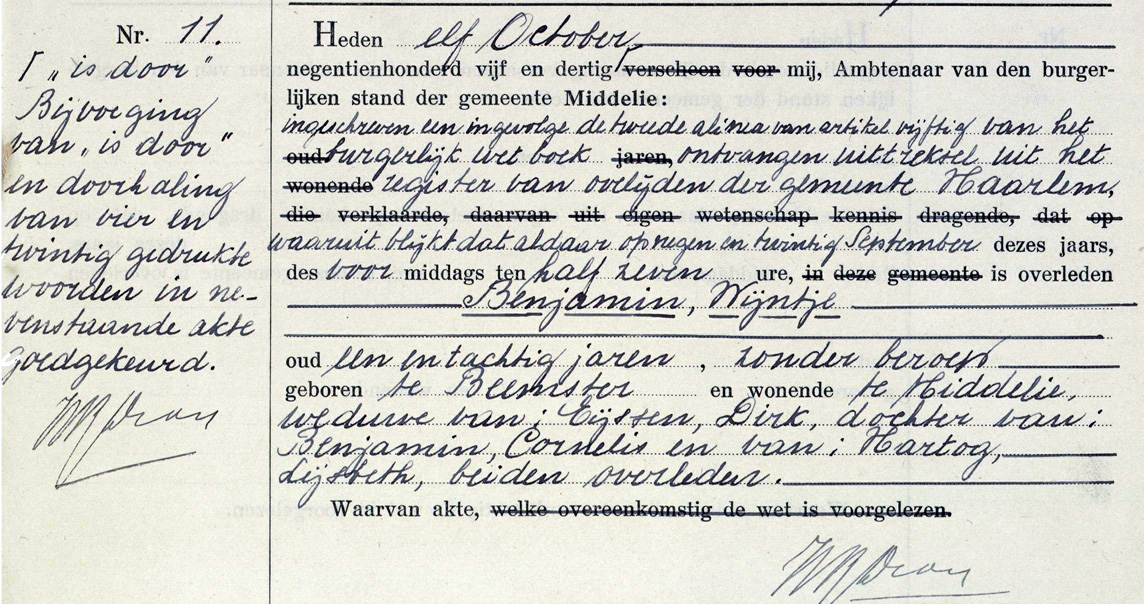 Nr. 11.
Γ „is door"
Bijvoeging
van „is door"
en doorhaling
van vier en
twintig gedrukte
woorden in ne-
venstaande akte
goedgekeurd.
Heden elf October,
negentienhonderd vijf en dertig verscheen voor mij, Ambtenaar van den burger-
lijken stand der gemeente Middelie:
ingeschreven een ingevolge de tweede alinea van artikel vijftig van het
oud burgerlijk wet boek jaren, ontvangen uittreksel uit het
wonende register van overlijden der gemeente Haarlem,
die verklaarde, daarvan uit eigen wetenschap kennis dragende, dat op
waaruit blijkt dat aldaar op negen en twintig September dezes jaars,
des voor middags ten half zeven ure, in deze gemeente is overleden
Benjamin, Wijntje
oud een en tachtig jaren, zonder beroep
geboren te Beemster en wonende te Middelie,
weduwe van: Eijssen, Dirk, dochter van:
Benjamin, Cornelis en van: Hartog,
Lijsbeth, beiden overleden.
Waarvan akte, welke overeenkomstig de wet is voorgelezen.